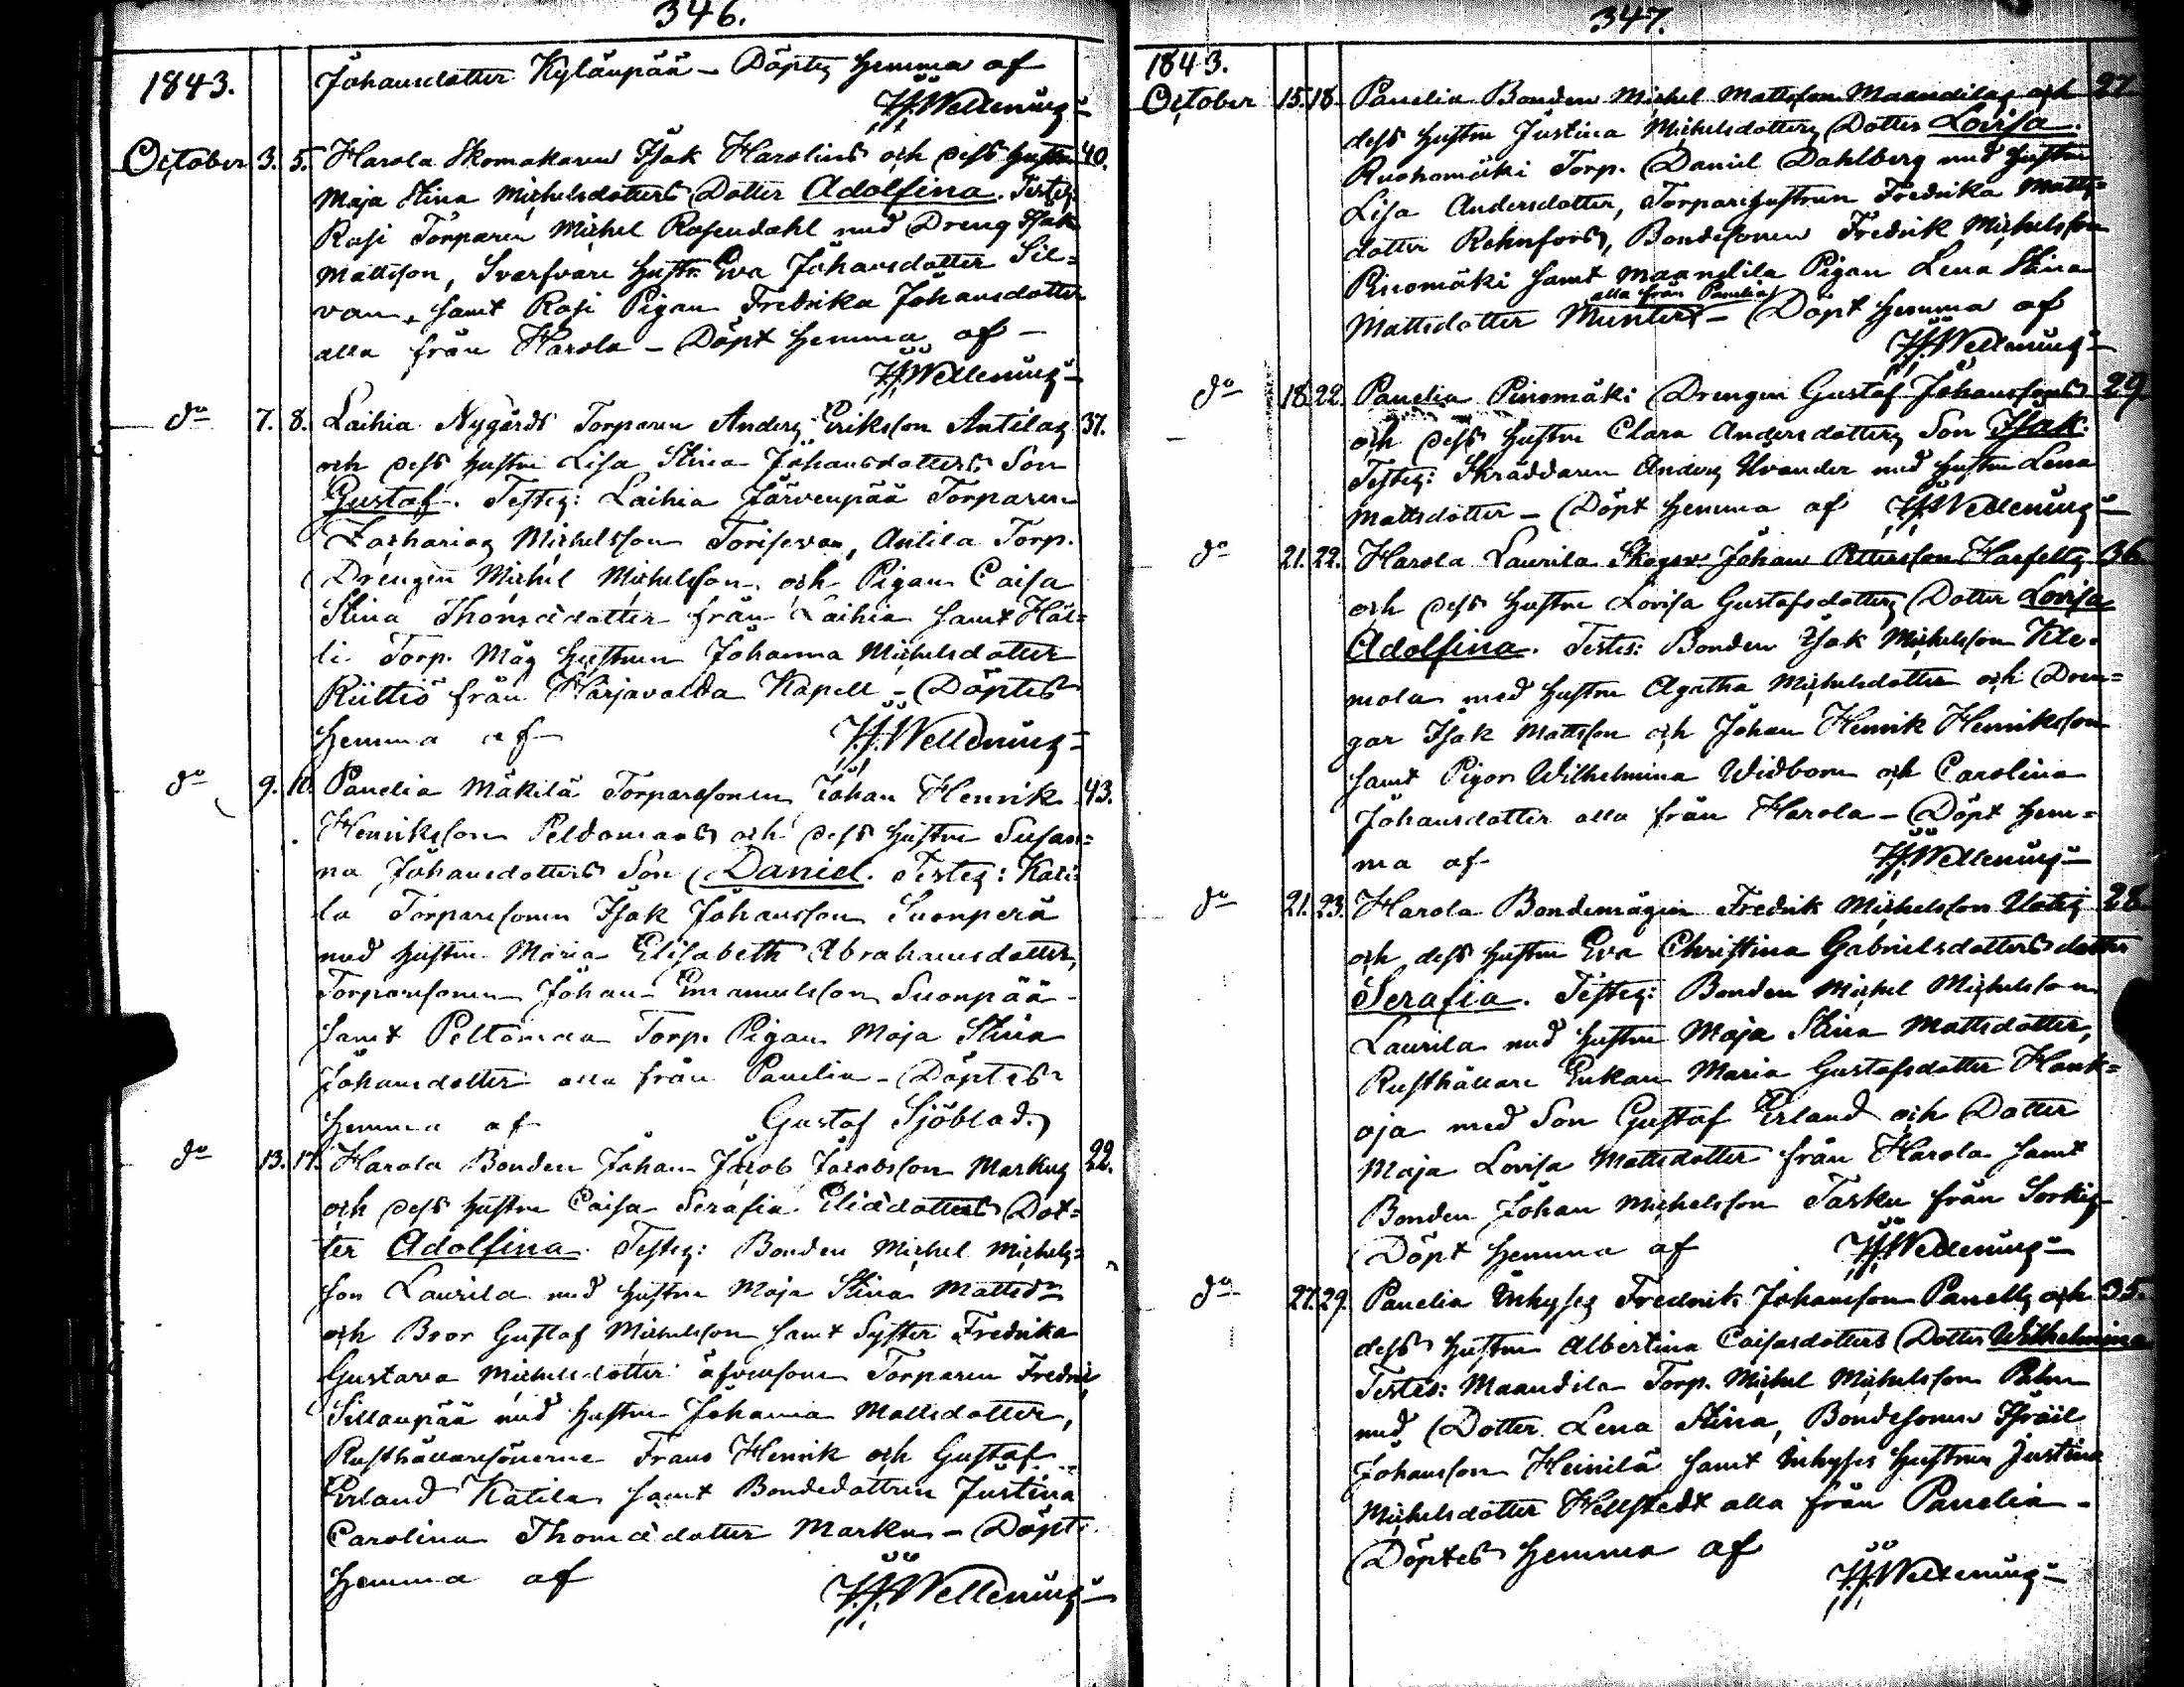 346.
1843.
Johansdotter Kyläupää - Döptes hemma af
October 3. 5. Harola Skomakaren Isak Harolins och dess hustru 40.
Maja Stina Michelsdotters Dotter Adolfina. Testes:
Rasi Torparen Michel Rosendahl med Dreng Isak
Mattsson, Svarfvare hustr. Eva Johansdotter Sil-
van, samt Rasi Pigan Fredrika Johansdotter
alla från Harola - Döpt hemma af -
do 7. 8. Laihia Nygårds Torparen Anders Eriksson Antilas 37.
och dess hustru Lisa Stina Johansdotters Son
Gustaf. Testes: Laihia Järvenpää Torparen
Zacharias Michelsson Torisevan, Antila Torp.
Drengen Michel Michelsson och Pigan Caisa
Stina Thomædotter från Laihia samt Häi-
li Torp. Måg hustrun Johanna Michelsdotter
Riittiö från Harjavalda Kapell - Döptes
hemma af
do 9. 10. Panelia Mäkilä Torparesonen Johan Henrik 43.
Henriksson Peldomans och dess hustru Susan-
na Johansdotters Son Daniel. Testes: Kati-
la Torparesonen Isak Johansson Suonperä
med hustru Maria Elisabeth Abrahamsdotter,
Torparesonen Johan Emanuelsson Suonpää
samt Peltoman Torp. Pigan Maja Stina
Johansdotter alla från Panelia - Döptes
hemma af Gustaf Sjöblad.
do 13. 17. Harola Bonden Johan Jacob Jacobsson Markus 22.
och dess hustru Caisa Serafia Eliædotters Dot-
ter Adolfina. Testes: Bonden Michel Michels-
son Laurila med hustru Maja Stina Mattsdr
och Bror Gustaf Michelsson samt Syster Fredrika
Gustava Michelsdotter äfvensom Torparen Fredric
Sillanpää med hustru Johanna Mattsdotter,
Rusthållaresönerne Frans Henrik och Gustaf
Erland Katila samt Bondedottren Justina
Carolina Thomædotter Marku - Döpt
hemma af
347.
1843.
October 15. 18. Panelia Bonden Michel Mattsson Maandilas och 27.
dess hustru Justina Michelsdotters Dotter Lovisa.
Ruohomäki Torp. Daniel Dahlberg med hustru
Lisa Andersdotter, Torparehustrun Fredrika Matts-
dotter Rehnfors, Bondesonen Fredrik Michelsson
Pinomäki samt Maandila Pigan Lena Stina
alla från Panelia
Mattsdotter Munter - Döpt hemma af
do 18. 22. Panelia Pinomäki Drengen Gustaf Johanssons 29.
och dess hustru Clara Andersdotters Son Isak.
Testes: Skräddaren Anders Uvander med hustru Lena
Mattsdotter - Döpt hemma af
do 21. 22. Harola Laurila Johan Pettersson 36.
och dess hustru Lovisa Gustafsdotters Dotter Lovisa
Adolfina. Testes: Bonden Isak Michelsson Kle-
mola med hustru Agatha Michelsdotter och Dren-
gar Isak Mattsson och Johan Henrik Henriksson
samt Pigor Wilhelmina Widbom och Carolina
Johansdotter alla från Harola - Döpt hem-
ma af
do 21. 23. Harola Bondemågen Fredrik Michelsson Uotis 28.
och dess hustru Eva Christina Gabrielsdotters dotter
Serafia. Testes: Bonden Michel Michelsson
Laurila med hustru Maja Stina Mattsdotter,
Rusthållare Enkan Maria Gustafsdotter Hank-
oja med Son Gustaf Erland och Dotter
Maja Lovisa Mattsdotter från Harola samt
Bonden Johan Michelsson Tasku från Sorkis
Döpt hemma af
do 27. 29. Panelia Inhyses Fredrik Johansson Panells och 35.
dess hustru Albertina Caisasdotters Dotter Wilhelmina
Testes: Maandila Torp. Michel Michelsson Palm
med Dotter Lena Stina, Bondesonen Israel
Johansson Heinilä samt Inhyses hustrun Justina
Michelsdotter Hellstedt alla från Panelia -
Döptes hemma af